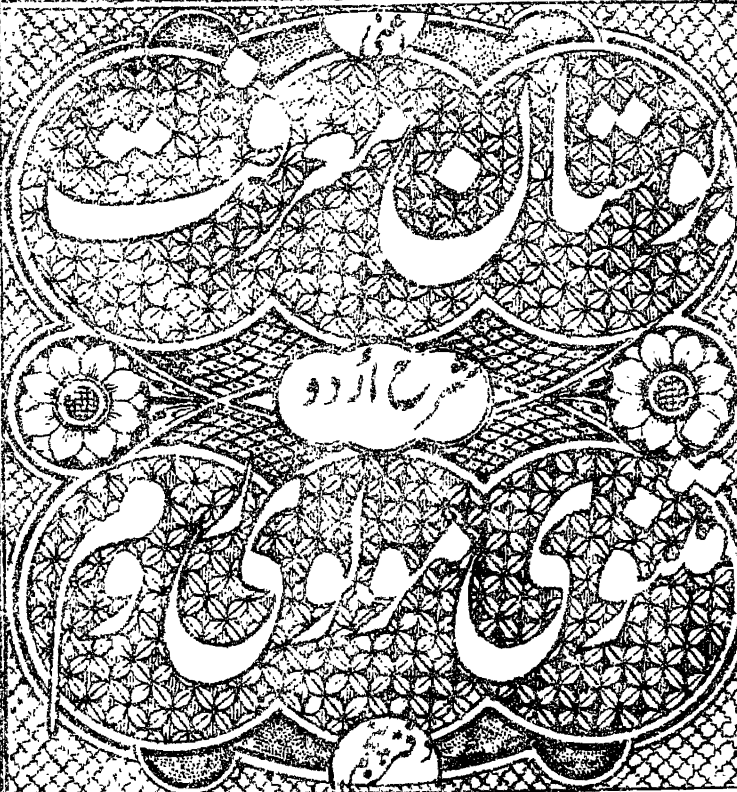 بوستان معرفت
شرح اردو
مثنوی مولوی روم